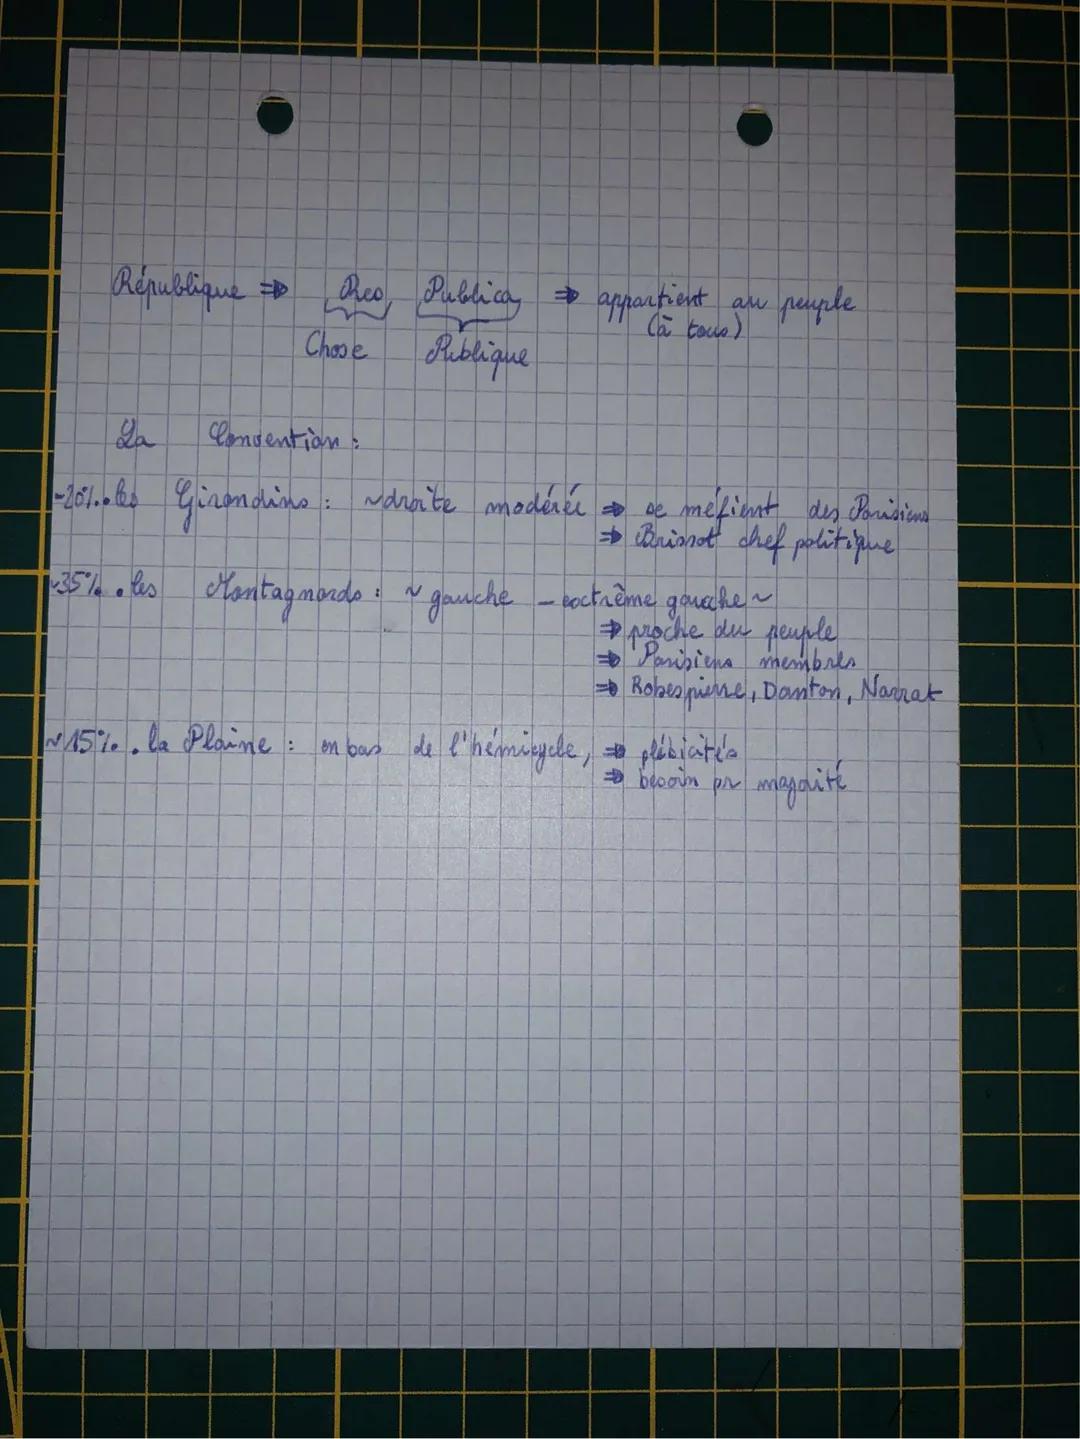 République => Res Publica => appartient au peuple
(à tous)
Chose Publique
La Convention :
~20% . les Girondins : ~droite modérée => se méfient des Parisiens
=> Brissot chef politique
~35% . les Montagnards : ~ gauche - extrême gauche ~
=> proche du peuple
=> Parisiens membres
=> Robespierre, Danton, Marrat
~15% . la Plaine : en bas de l'hémicycle, => plébicités
=> besoin pr majorité